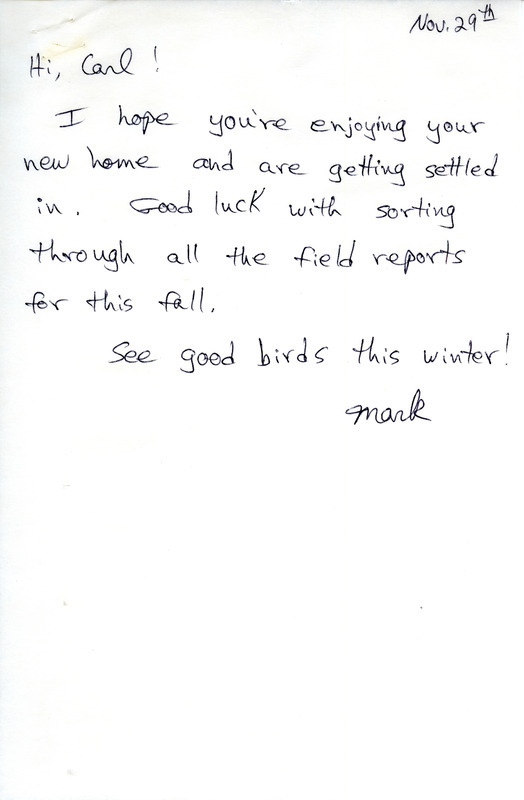 Nov. 29th
Hi, Carl!
I hope you're enjoying your
new home and are getting settled
in. Good luck with sorting
through all the field reports
for this fall.
See good birds this winter!
Mark